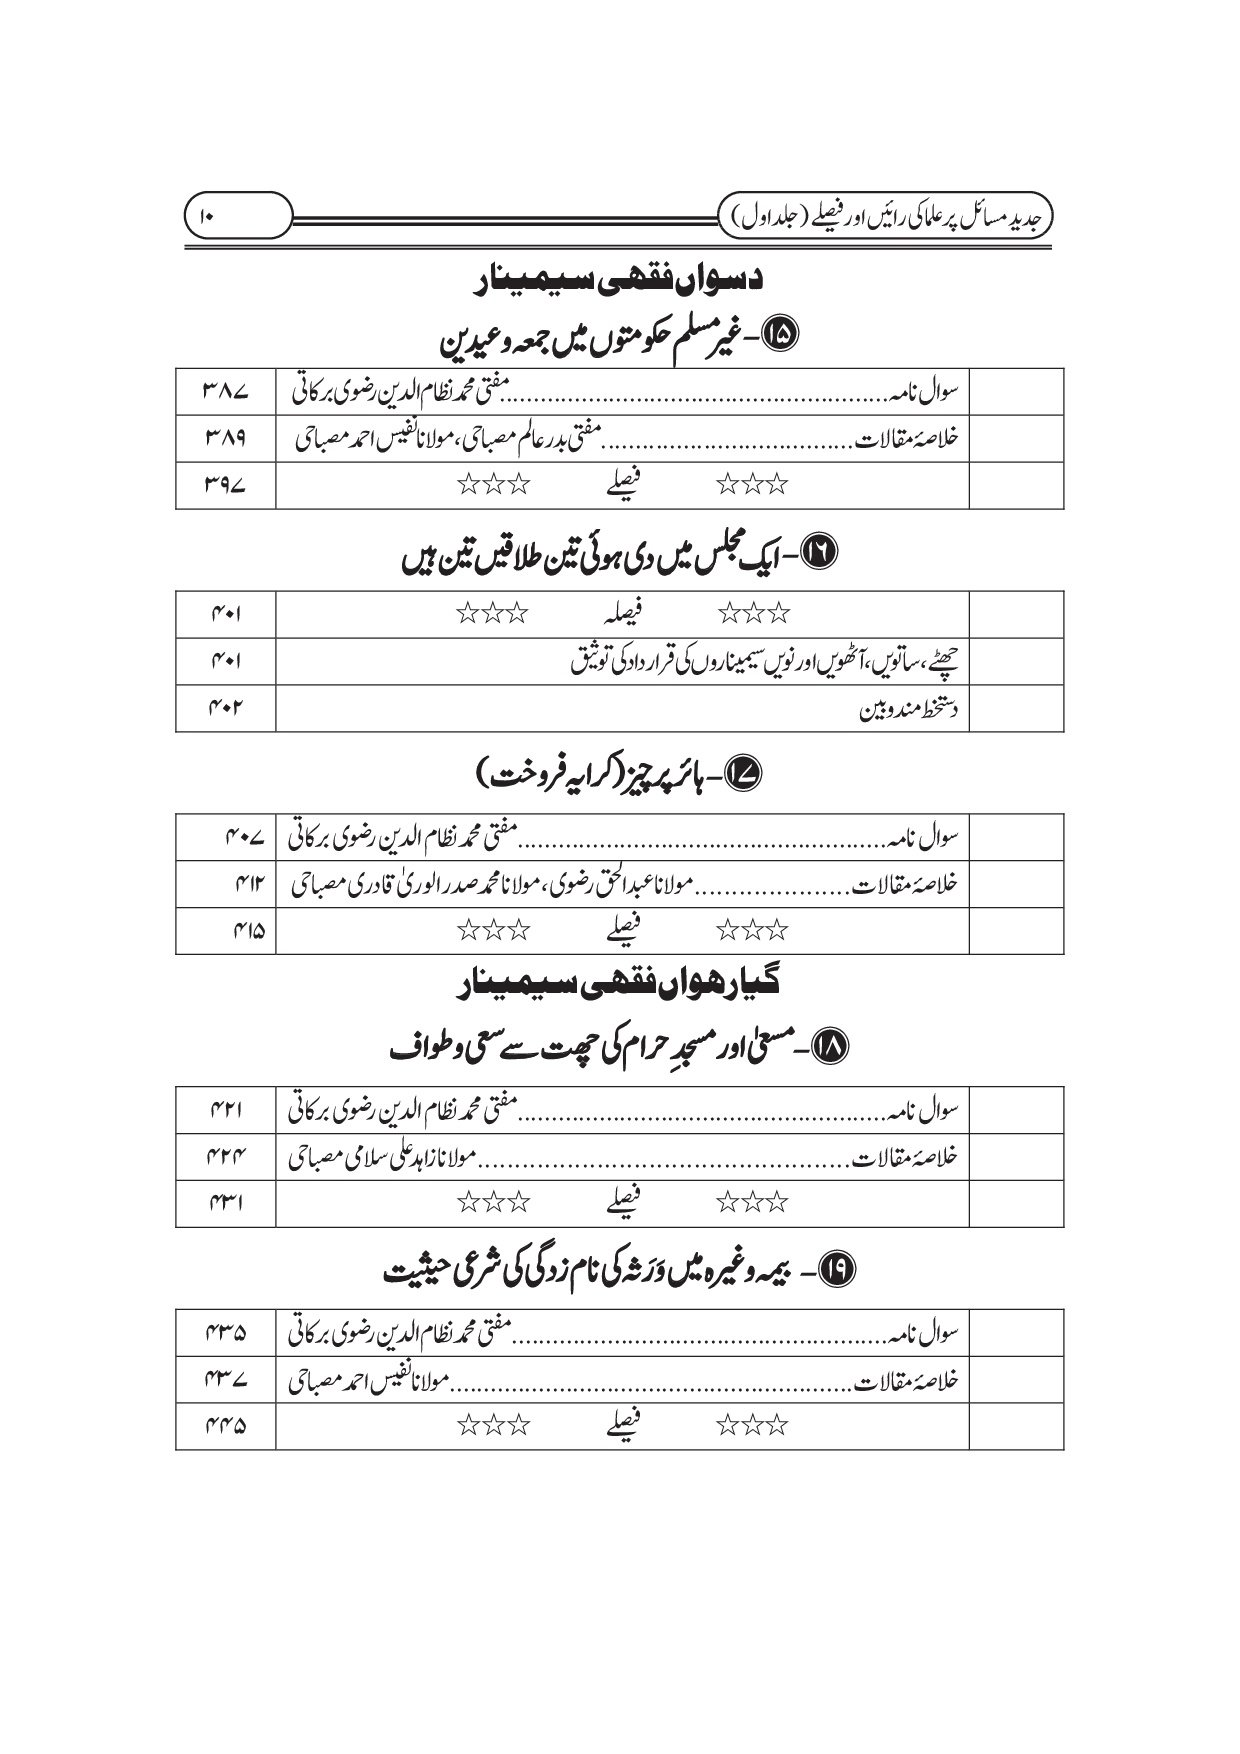 جدید مسائل پر علما کی رائیں اور فیصلے (جلد اول) ۱۰
دسواں فقهی سیمینار
۱۵- غیر مسلم حکومتوں میں جمعہ و عیدین
سوال نامہ..........................................................مفتی محمد نظام الدین رضوی برکاتی ۳۸۷
خلاصۂ مقالات.....................................مفتی بدر عالم مصباحی، مولانا نفیس احمد مصباحی ۳۸۹
☆☆☆ فیصلے ☆☆☆ ۳۹۷
۱۶- ایک مجلس میں دی ہوئی تین طلاقیں تین ہیں
☆☆☆ فیصلہ ☆☆☆ ۴۰۱
چھٹے، ساتویں، آٹھویں اور نویں سیمیناروں کی قرار داد کی توثیق ۴۰۱
دستخط مندوبین ۴۰۲
۱۷- ہائر پرچیز (کرایہ فروخت)
سوال نامہ.......................................................مفتی محمد نظام الدین رضوی برکاتی ۴۰۷
خلاصۂ مقالات.....................مولانا عبد الحق رضوی، مولانا محمد صدر الوریٰ قادری مصباحی ۴۱۲
☆☆☆ فیصلے ☆☆☆ ۴۱۵
گیارهواں فقهی سیمینار
۱۸- مسعیٰ اور مسجدِ حرام کی چھت سے سعی و طواف
سوال نامہ.......................................................مفتی محمد نظام الدین رضوی برکاتی ۴۲۱
خلاصۂ مقالات..................................................مولانا زاہد علی سلامی مصباحی ۴۲۴
☆☆☆ فیصلے ☆☆☆ ۴۳۱
۱۹- بیمہ وغیرہ میں وَرَثہ کی نام زدگی کی شرعی حیثیت
سوال نامہ........................................................مفتی محمد نظام الدین رضوی برکاتی ۴۳۵
خلاصۂ مقالات...........................................................مولانا نفیس احمد مصباحی ۴۳۷
☆☆☆ فیصلے ☆☆☆ ۴۴۵